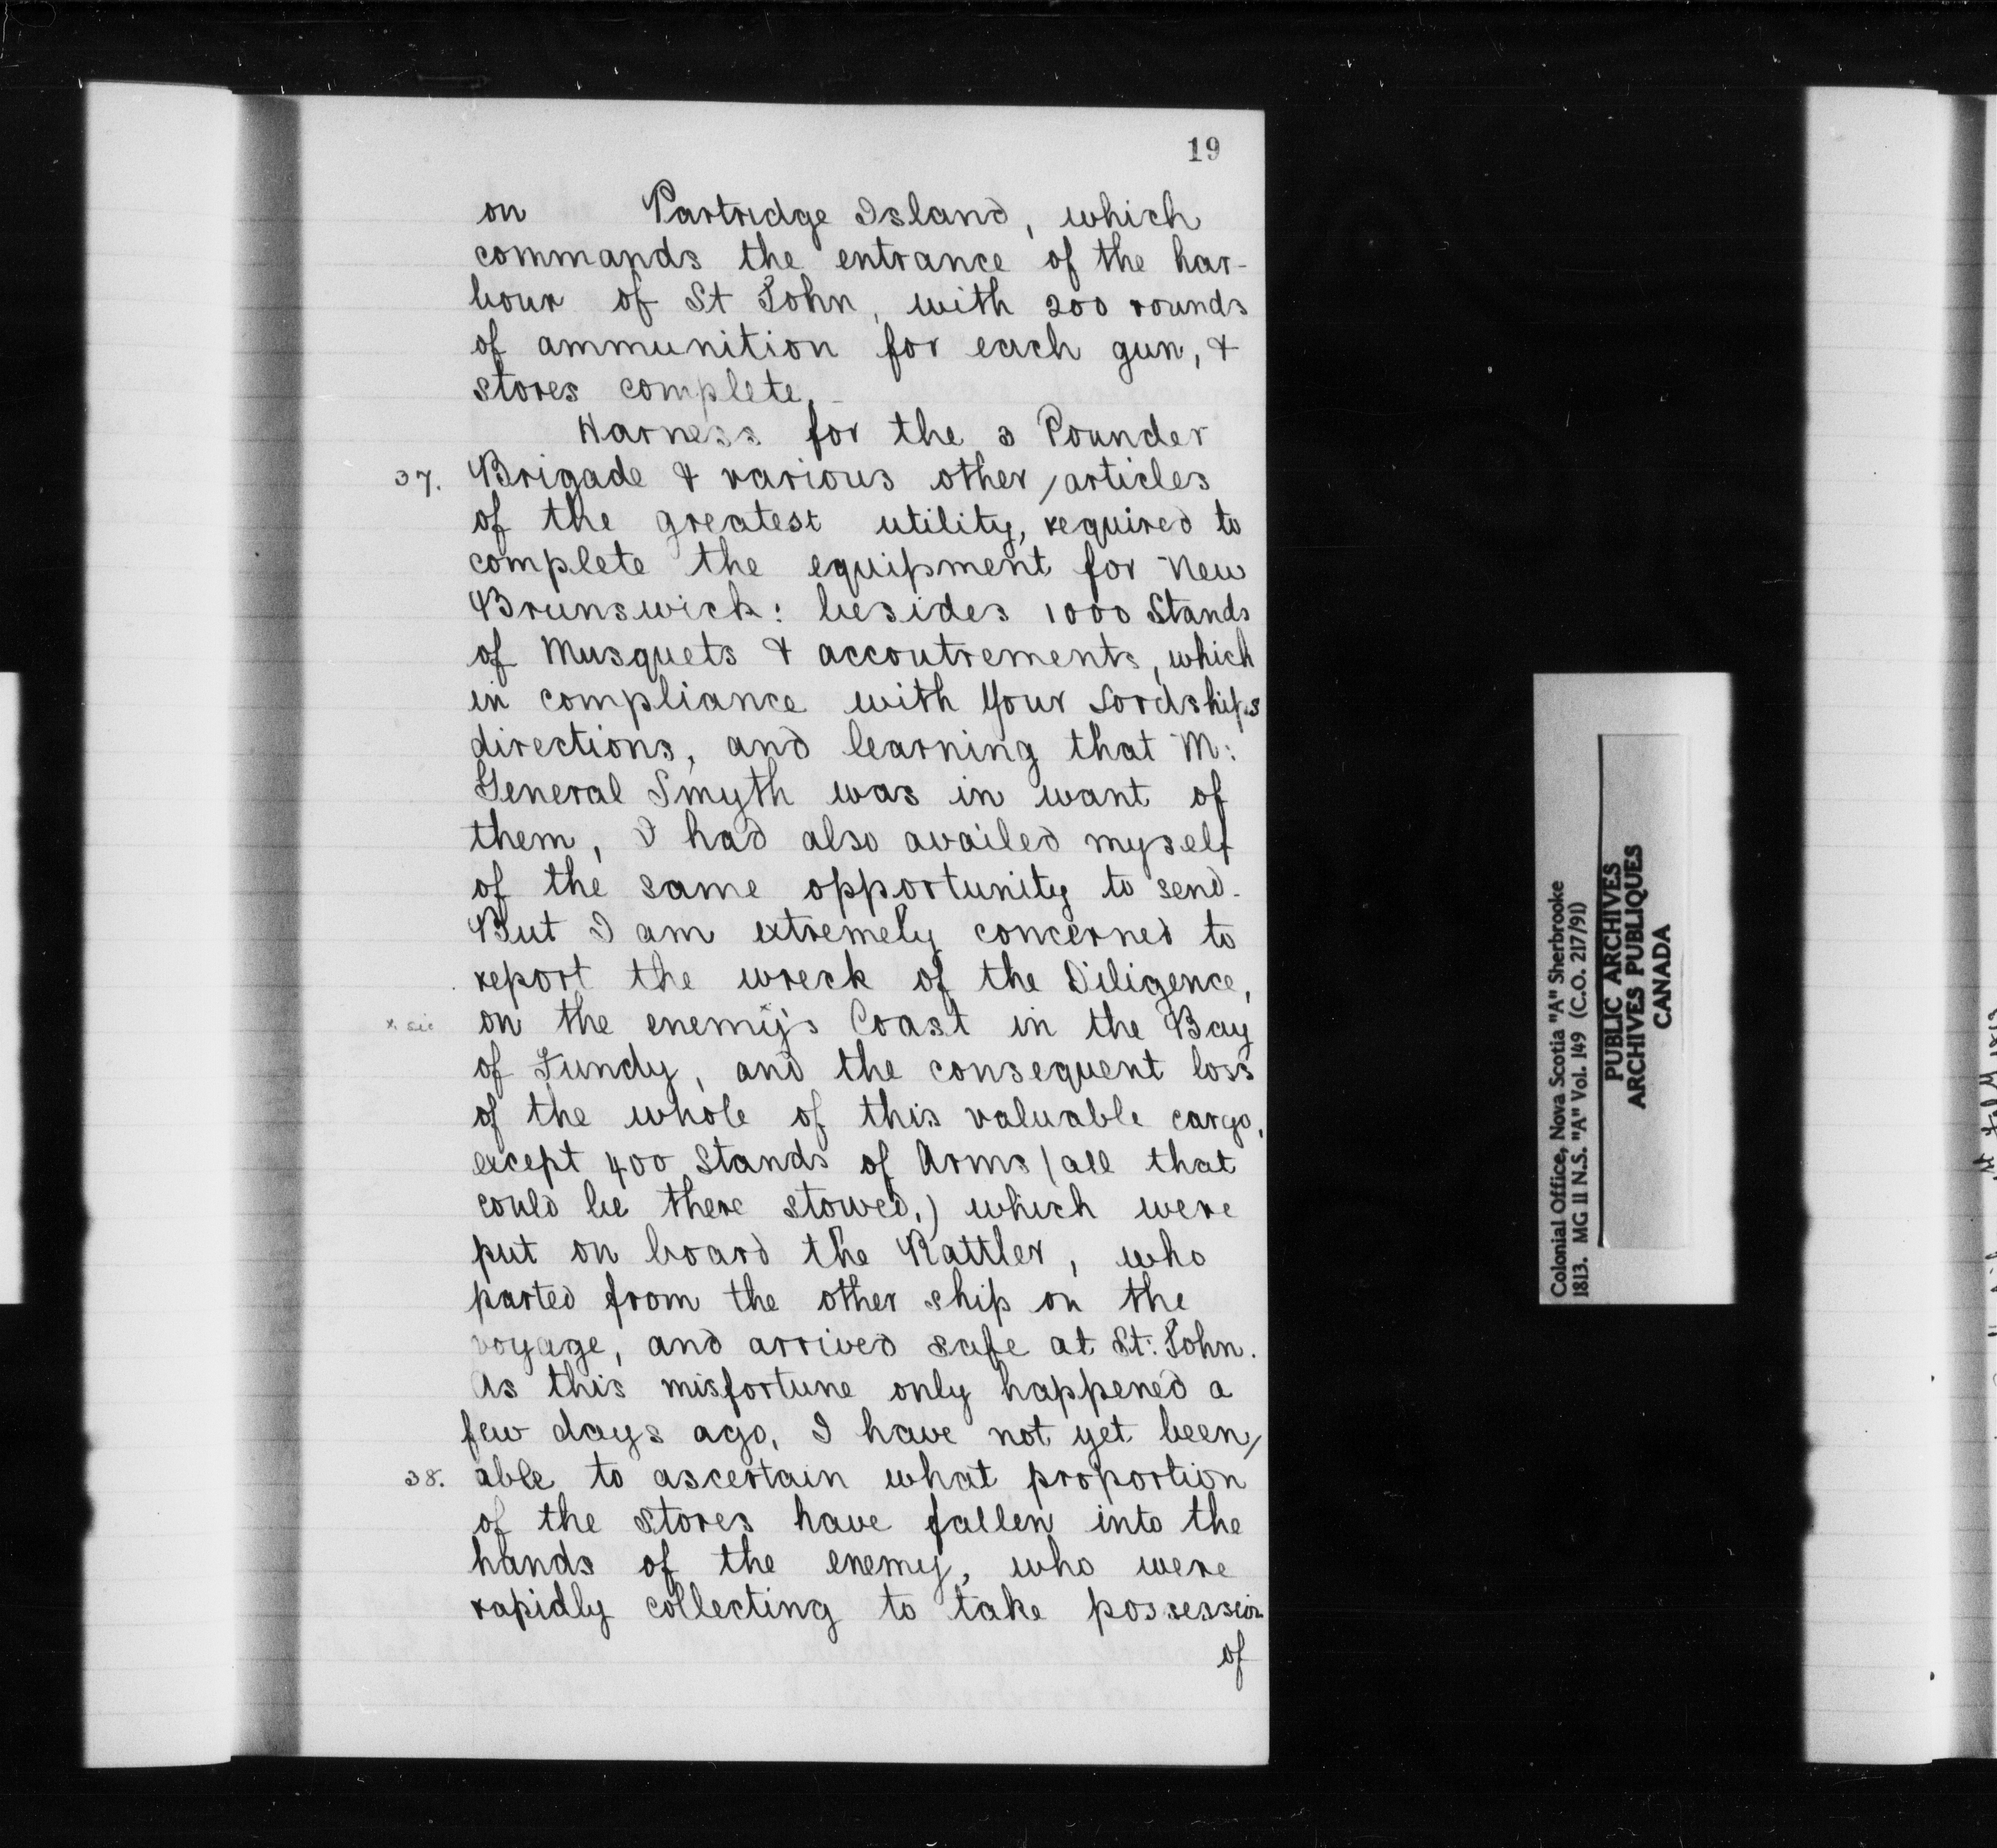 19
on Partridge Island, which
commands the entrance of the har-
bour of St John, with 200 rounds
of ammunition for each gun, &
stores complete.
Harness for the 3 Pounder
37. Brigade & various other / articles
of the greatest utility, required to
complete the equipment for New
Brunswick: besides 1000 Stands
of Musquets & accoutrements, which
in compliance with Your Lordships
directions, and learning that M:
General Smyth was in want of
them, I had also availed myself
of the same opportunity to send.
But I am extremely concerned to
report the wreck of the Diligence,
x sic on the enemij's Coast in the Bay
of Fundy, and the consequent loss
of the whole of this valuable cargo,
except 400 Stands of Arms (all that
could be there stowed,) which were
put on board the Rattler, who
parted from the other ship on the
voyage, and arrived safe at St: John.
As this misfortune only happened a
few days ago, I have not yet been /
38. able to ascertain what proportion
of the stores have fallen into the
hands of the enemy, who were
rapidly collecting to take possession
of
Colonial Office, Nova Scotia "A" Sherbrooke
1813. MG 11 N.S. "A" Vol. 149 (C.O. 217/91)
PUBLIC ARCHIVES
ARCHIVES PUBLIQUES
CANADA